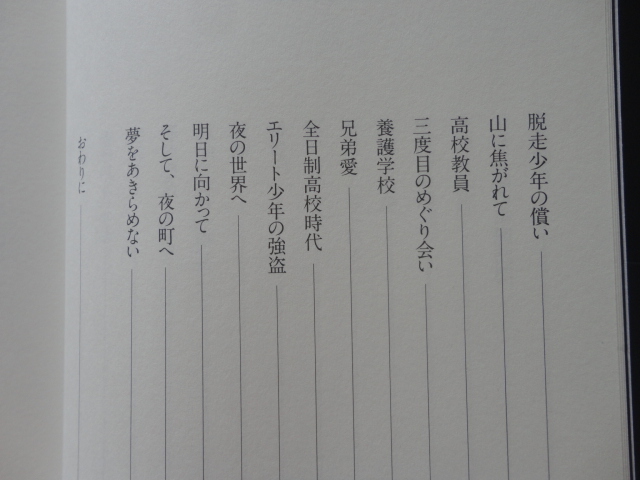 脱走少年の償い
山に焦がれて
高校教員
三度目のめぐり会い
養護学校
兄弟愛
全日制高校時代
エリート少年の強盗
夜の世界へ
明日に向かって
そして、夜の町へ
夢をあきらめない
おわりに